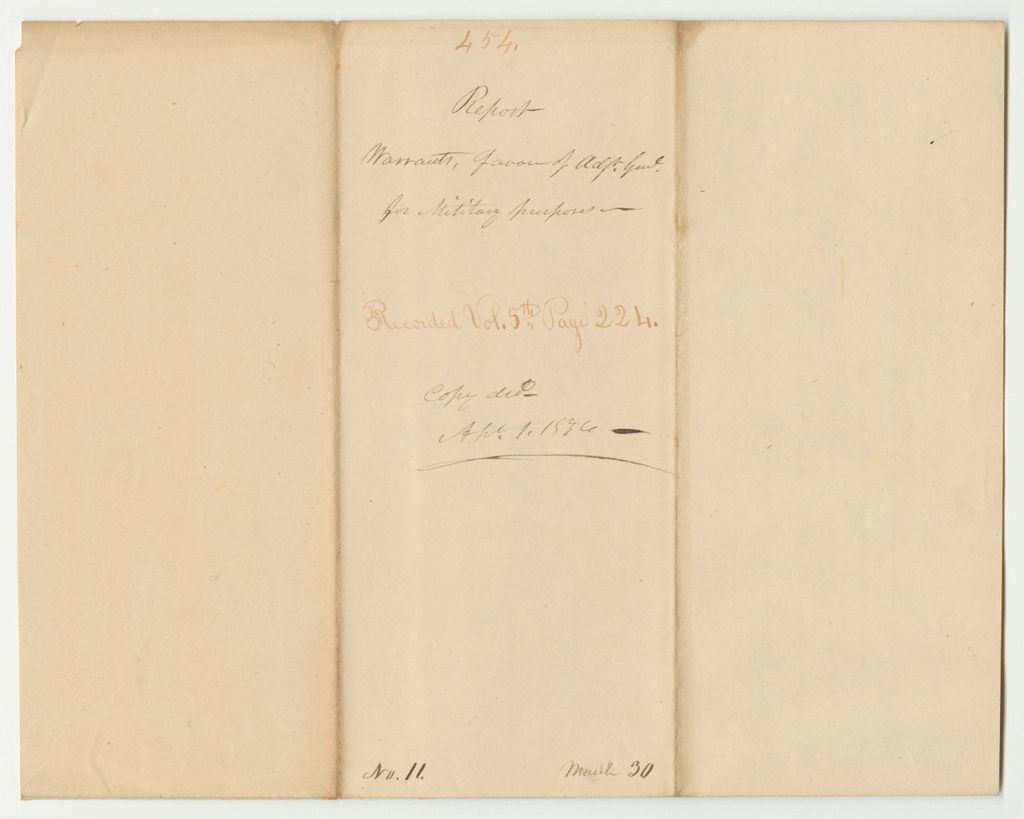 454.
Report
Warrants, favour of Adjt. Genl.
for Military purposes —
Recorded Vol. 5th Page 224.
Copy
Apl. 1. 1836 —
No. 11. March 30